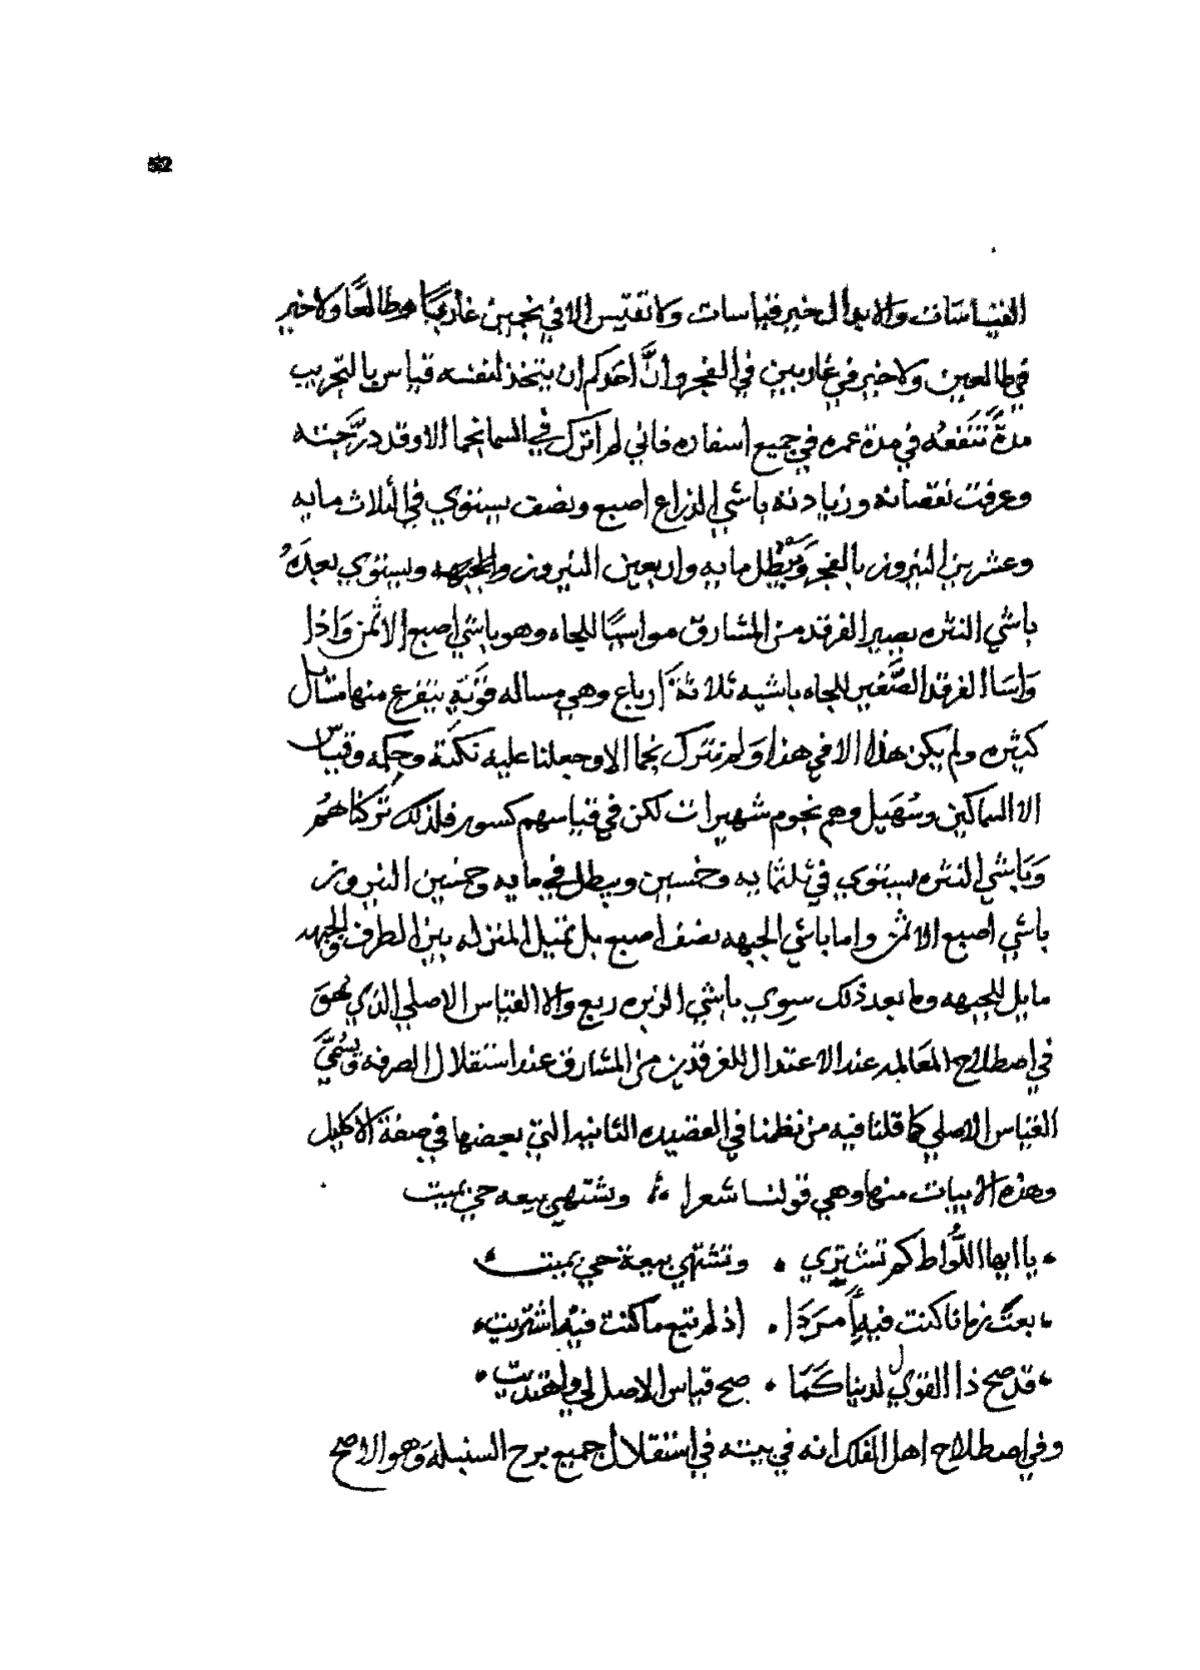 52
القياسات والابدال خير قياسات ولا تقتيس الا في نجمين غاربًا وطالعًا ولا خير
في طالعين ولا خير في غاربين في الفجر وانَّ احدكم ان يتخذ لنفسه قياس بالتجريب
مدةً تَنفعُه في مدة عمره في جميع اسفاره فاني لم اترك في السما نجما الا وقد درَّجته
وعرفت نقصانه وزيادته باشي الذراع اصبع ونصف يستوي في الثلاث مايه
وعشرين النيروز بالفجر ويبطل مايه واربعين النيروز والجبهه ويستوي بعدهُ
باشي النثره يصير الفرقد من المشارق مواسيًا للجاه وهو باشي اصبع الا ثمن وَاذا
وَاسَا الفرقد الصَّغير للجاه باشيه ثلاثة ارباع وهي مساله قويَّة يتفرع منها مسَايل
كثيره ولم يكن هذا الا في هذا وَلم نترك نجما الا وجعلنا عليه نكتة وحكمه وقياس
الا السماكين وسُهَيل وهم نجوم شهيرات لكن في قياسهم كسور فلذلك تركناهُم
وَباشي النثره يستوي في ثلثمايه وخمسين ويبطل في مايه وخمسين النيروز
باشي اصبع الا ثمن واما باشي الجبهه نصف اصبع بل تميل المنزله بين الطرف والجبهه
مايل للجبهه وما بعد ذلك سوي باشي الزبره ربع والا القياس الاصلي الذي هُوَ
في اصطلاح المعَالمه عند الاعتدال للفرقدين من المشارق عند استقلال الصرفه ويسُميَّ
القياس الاصلي كما قلنا فيه من نظمنا في القصيده الثانيه التي بعضها في صفة الاكليل
وهذه الابيات منها وهي قولنا شعرا وتشتهي بيعه حي بميت
يا ايها اللُّواط كم تشتري • وتشتهي بيعة حي بميت
بعتَ زمانا كنت فيهِ امرَدَا • اذ لم تبع ما كنت فيه اشتريت
قد صح ذا القول لدينا كَمَا • صح قياس الاصل لي واهتديت
وفي اصطلاح اهل الفلك انه في بيته في استقلال جميع برج السنبله وَهو الاصح